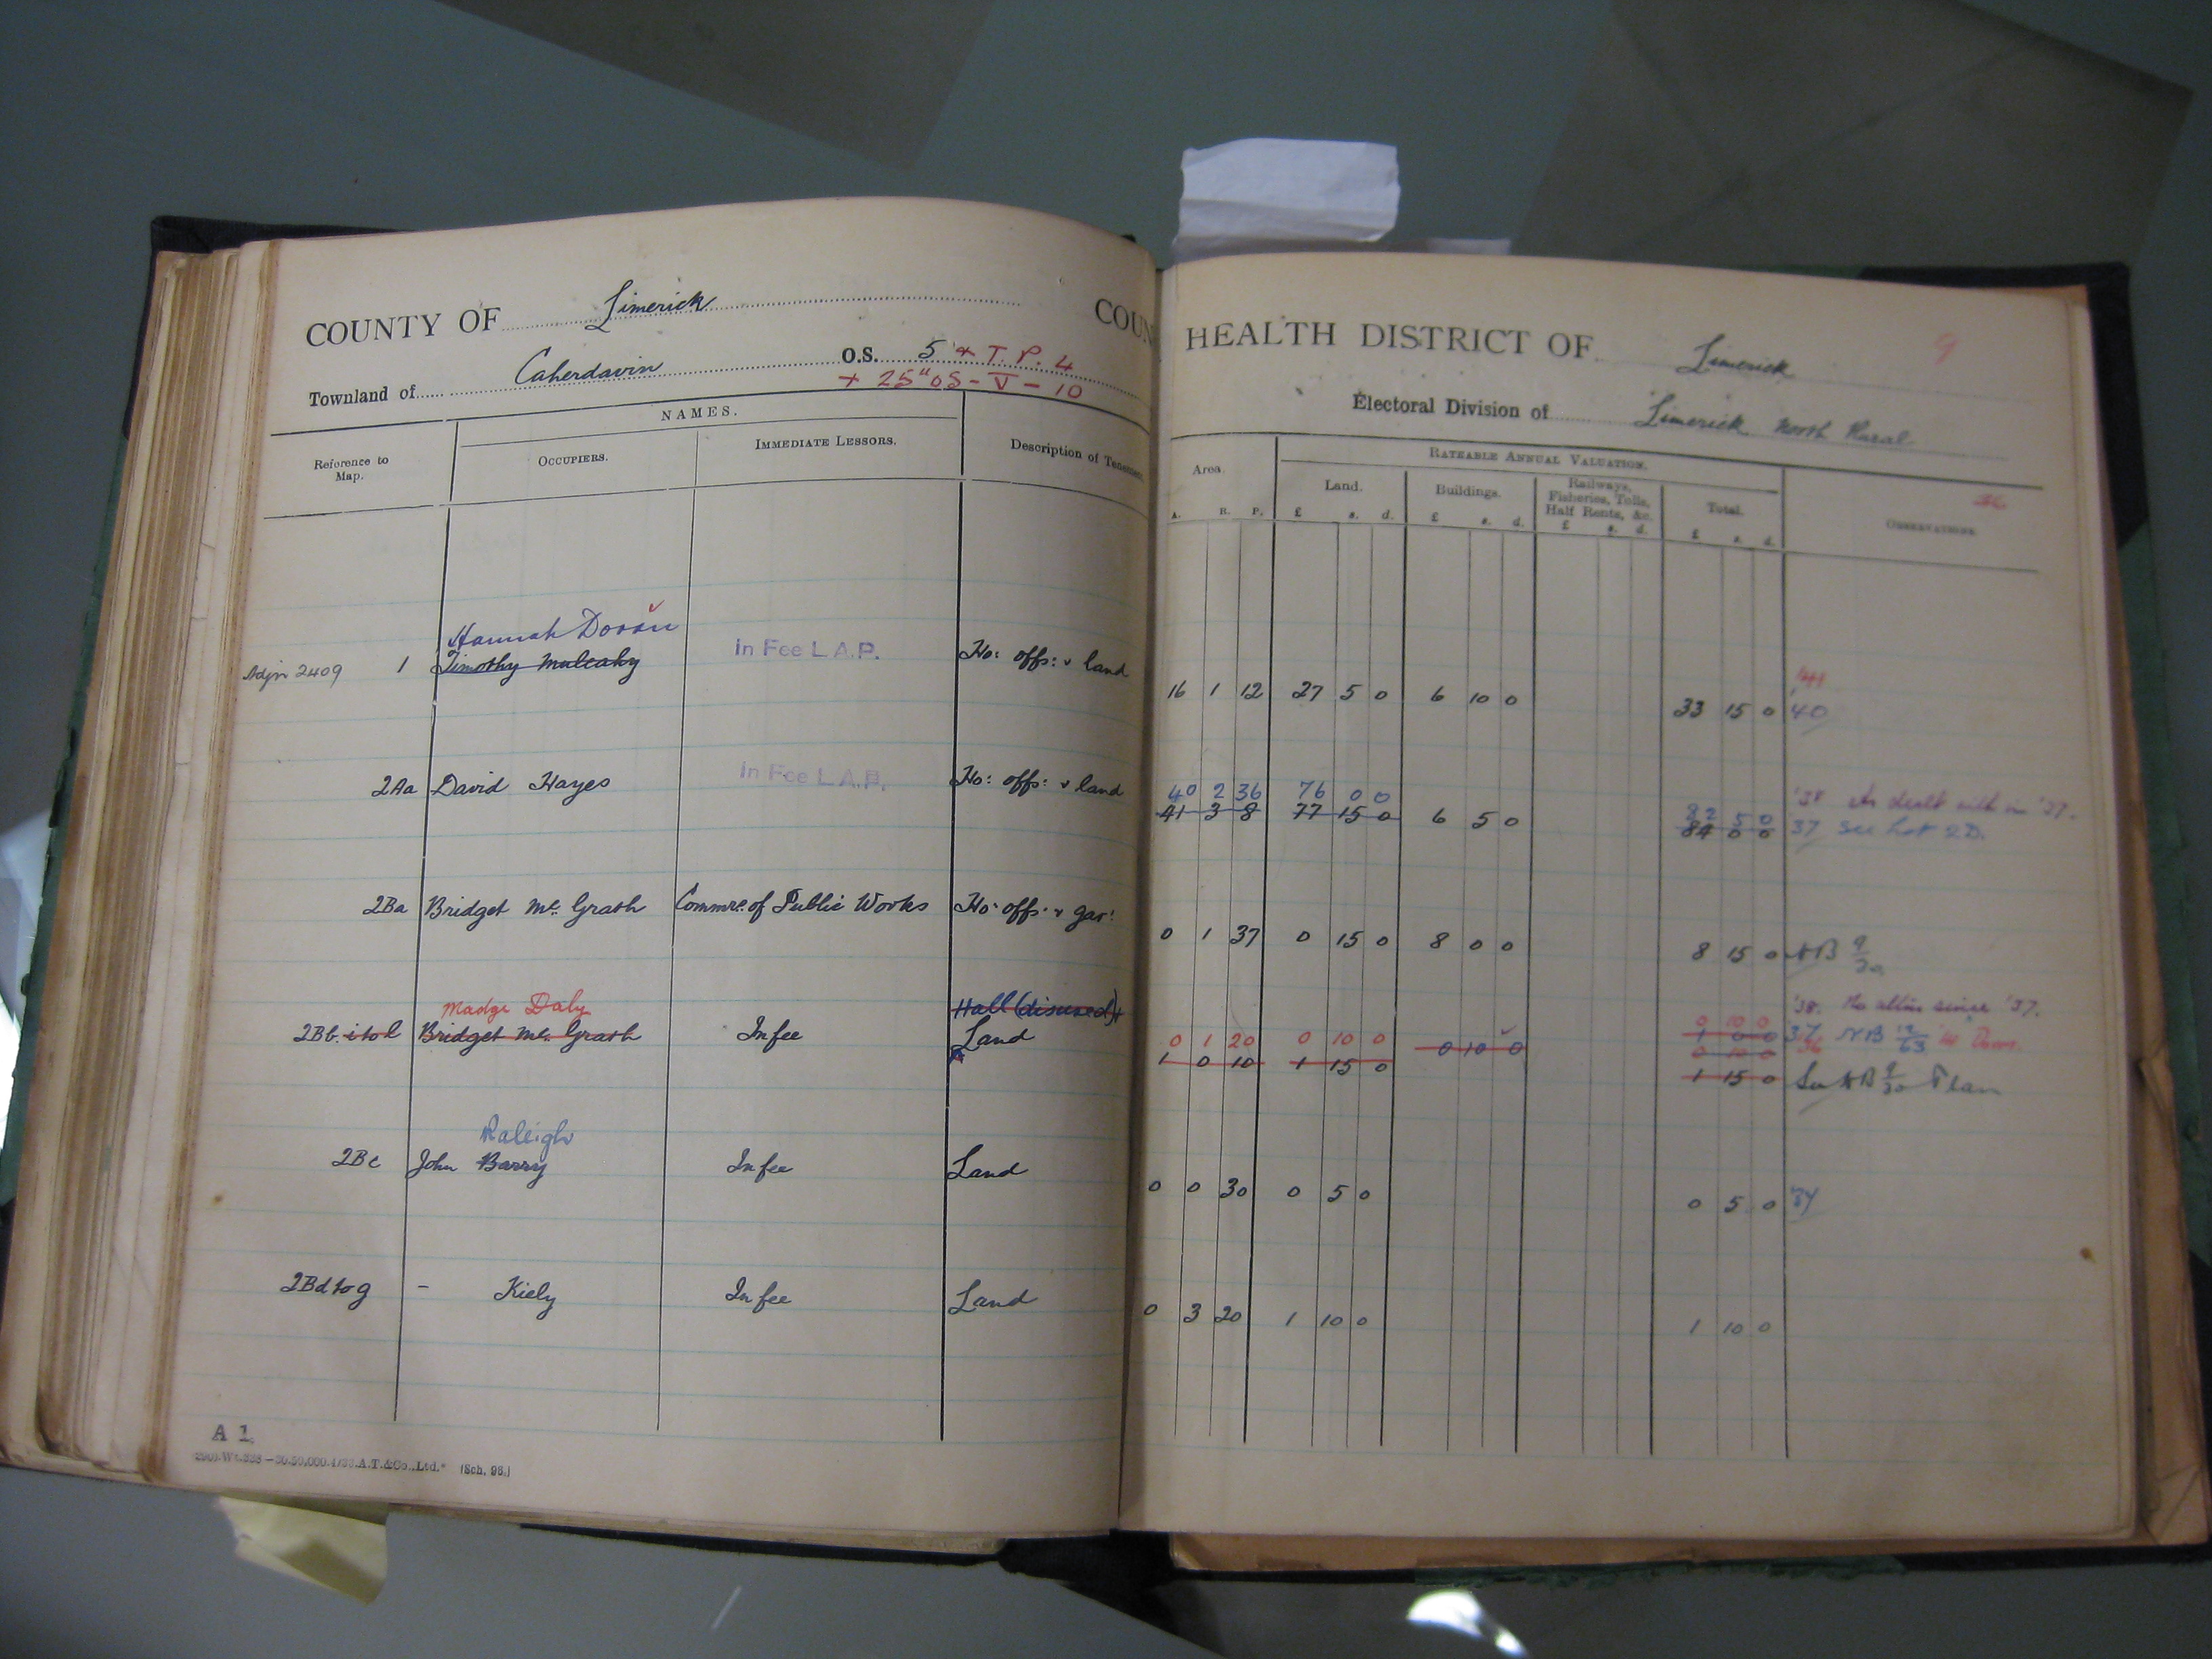 COUNTY OF Limerick
COUN
Townland of Caherdavin O.S. 5 & T. P. 4
+ 25" OS - V - 10
NAMES.
Reference to Map.
OCCUPIERS.
IMMEDIATE LESSORS.
Description of Tenement
Hannah Doran
Adjn 2409 1 Timothy Mulcahy In Fee L.A.P. Ho: offs: & land
2Aa David Hayes In Fee L.A.P. Ho: offs: & land
2Ba Bridget Mc. Grath Commrs. of Public Works Ho: offs: & gar:
Madge Daly Hall (disused) +
2Bb. i to l Bridget Mc. Grath In fee Land
Raleigh
2Bc John Barry In fee Land
2Bd to g - Kiely In fee Land
A 1.
A.T.&Co.,Ltd. (Sch. 96.)
HEALTH DISTRICT OF Limerick 9
Electoral Division of Limerick North Rural
RATEABLE ANNUAL VALUATION.
Area. Land. Buildings. Railways, Fisheries, Tolls, Half Rents, &c. Total. OBSERVATIONS
A. R. P. £ s. d. £ s. d. £ s. d. £ s. d.
'41
16 1 12 27 5 0 6 10 0 33 15 0 '40
40 2 36 76 0 0 82 5 0 '38 As dealt with in '37.
41 3 8 77 15 0 6 5 0 84 0 0 37 See Lot 2D.
0 1 37 0 15 0 8 0 0 8 15 0 NB 9/30
'38. No altn since '37.
0 1 20 0 10 0 0 10 0 0 10 0
1 0 0 37 NB 12/63
0 10 0 '36
1 0 10 1 15 0 1 15 0 See NB 9/30 Plan
0 0 30 0 5 0 0 5 0 '34
0 3 20 1 10 0 1 10 0